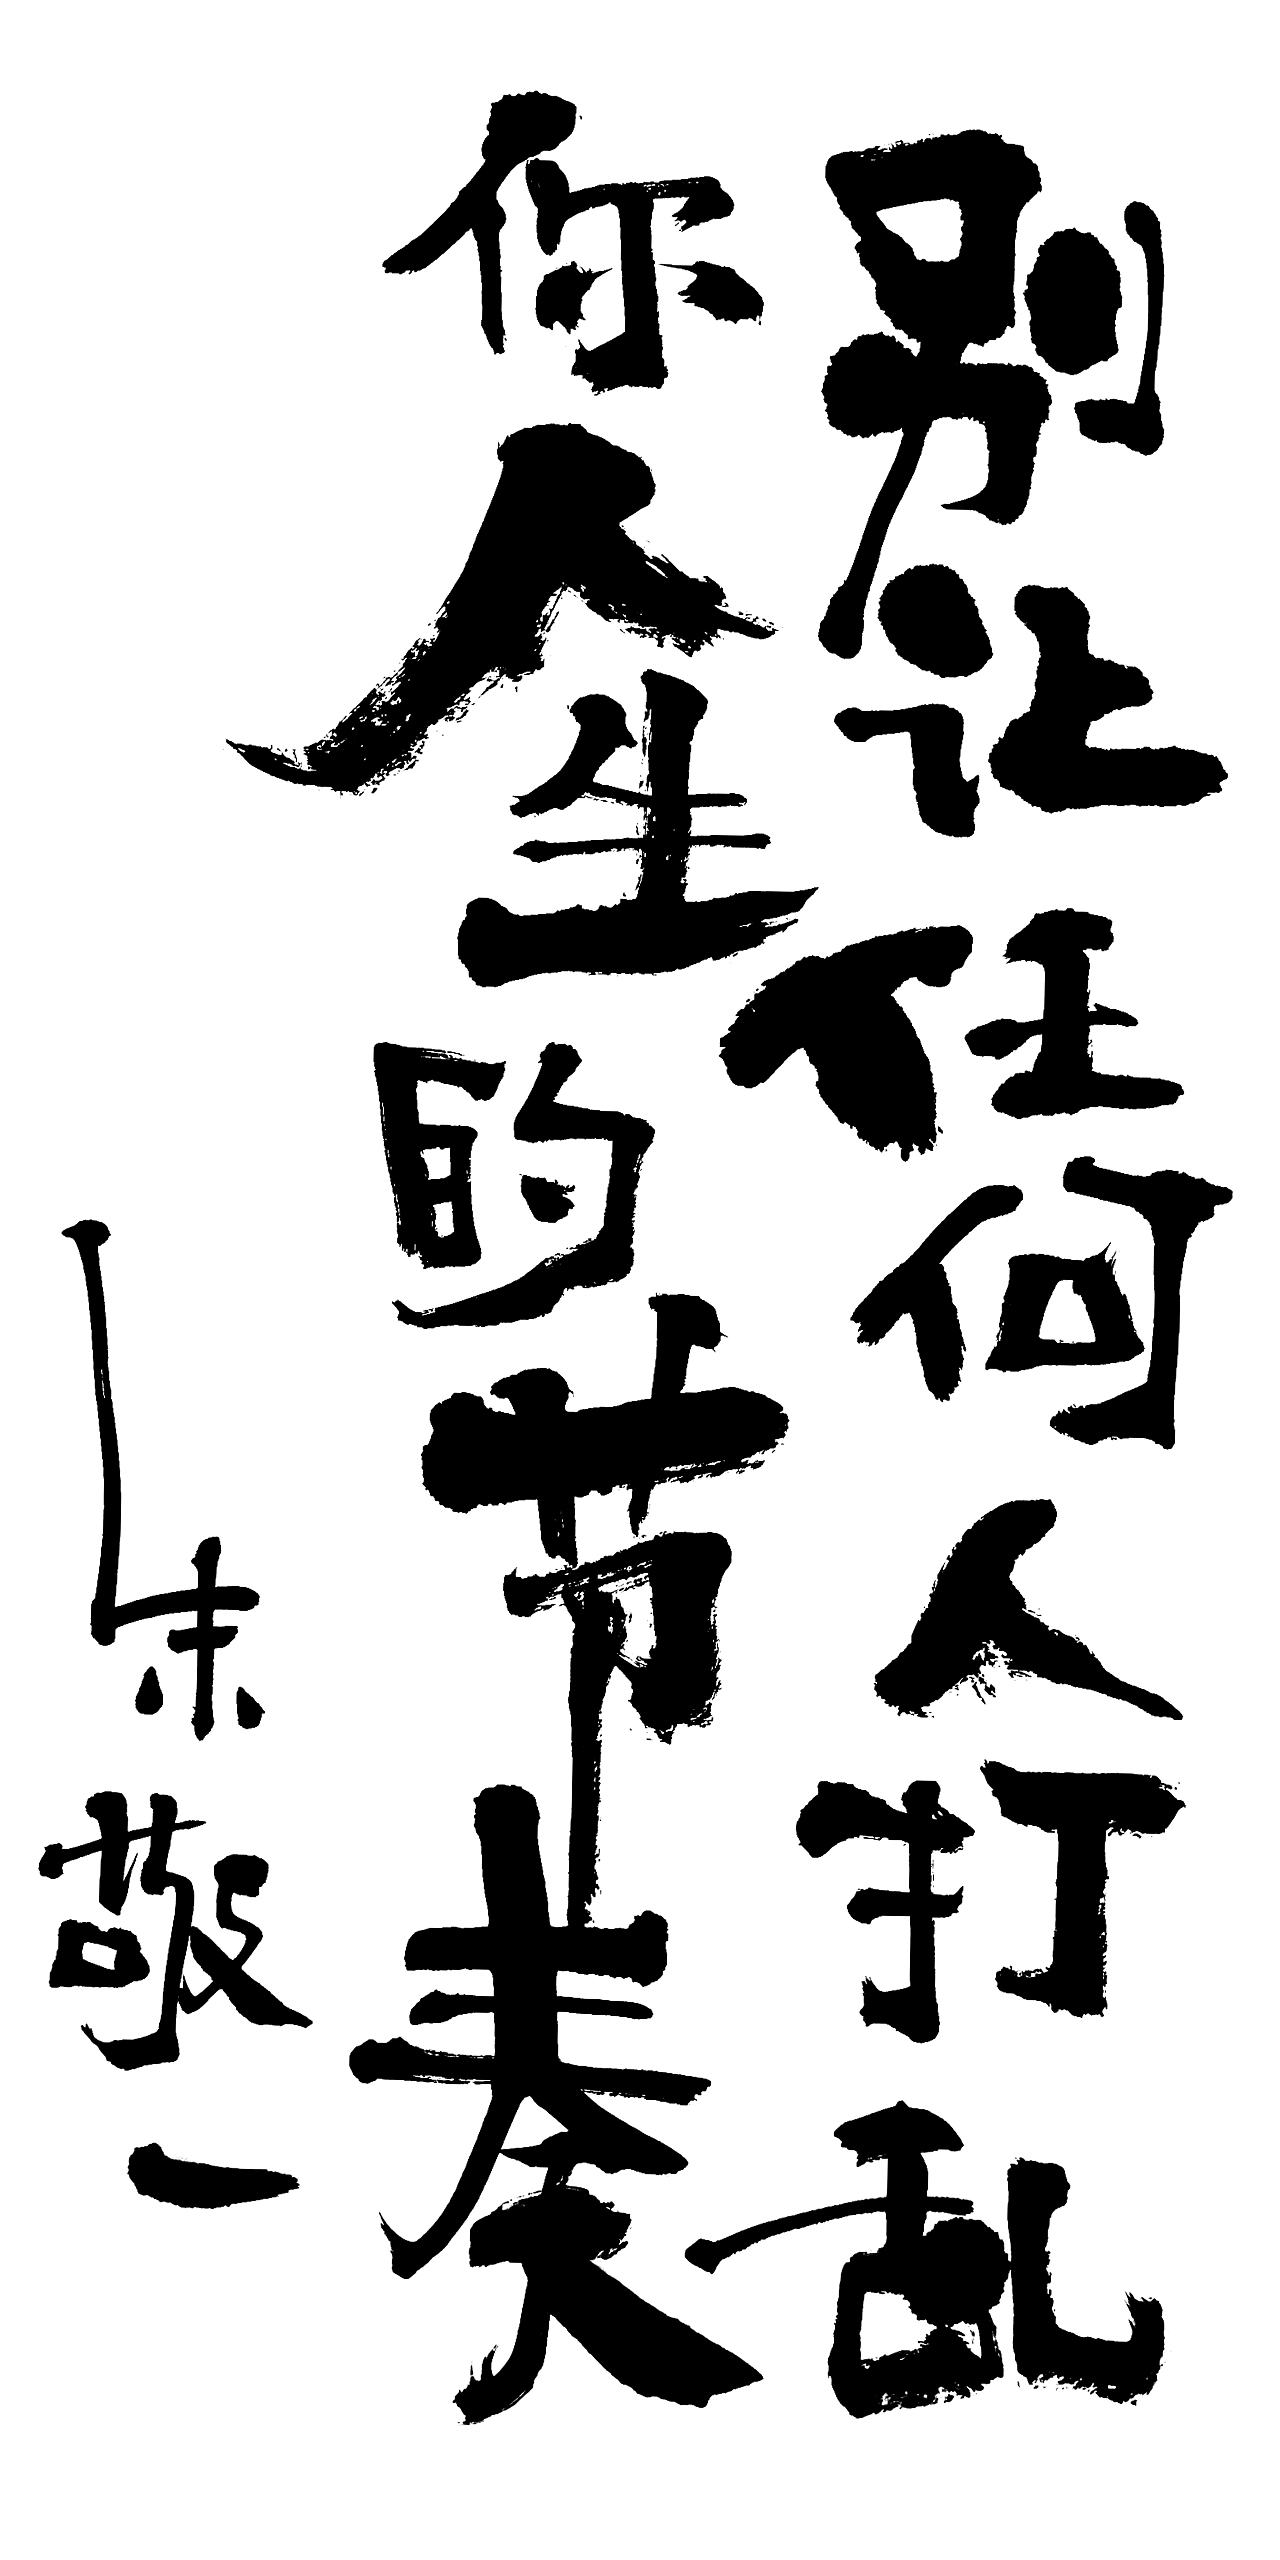 别让任何人打乱
你人生的节奏
朱敬一